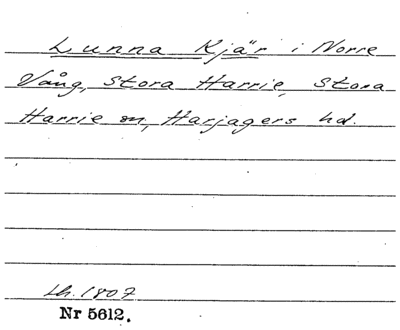 Lunna Kjär i Norre
Vång, Stora Harrie, Stora
Harrie sn, Harjagers hd.
Lh. 1807
Nr 5612.